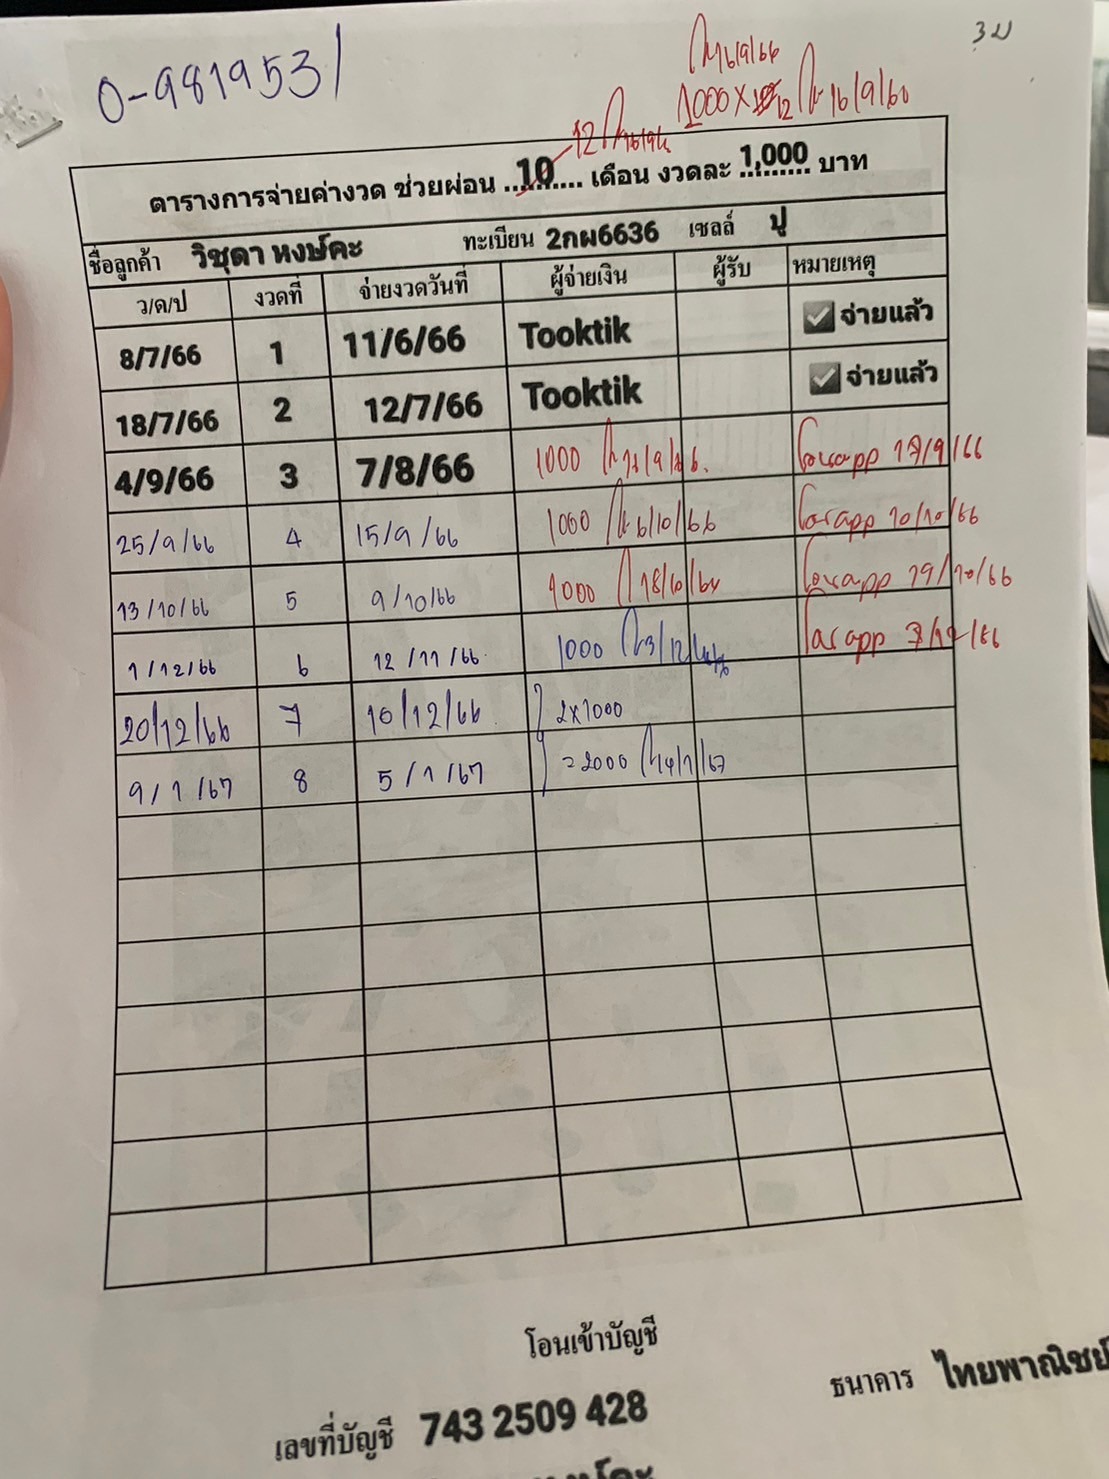 3 ม
0-9819531
16/9/66
1000 X 12 16/9/66
12
ตารางการจ่ายค่างวด ช่วยผ่อน ...10... เดือน งวดละ 1,000 บาท
ชื่อลูกค้า วิชุดา หงษ์คะ ทะเบียน 2กผ6636 เซลล์ ปู
ว/ด/ป งวดที่ จ่ายงวดวันที่ ผู้จ่ายเงิน ผู้รับ หมายเหตุ
8/7/66 1 11/6/66 Tooktik ✅ จ่ายแล้ว
18/7/66 2 12/7/66 Tooktik ✅ จ่ายแล้ว
4/9/66 3 7/8/66 1000 app 17/9/66
25/9/66 4 15/9/66 1000 6/10/66 app 10/10/66
13/10/66 5 9/10/66 1000 18/10/66 app 19/10/66
1/12/66 6 12/11/66 1000 3/12/66 app 7/12/66
20/12/66 7 10/12/66 2x1000
9/1/67 8 5/1/67 = 2000 14/1/67
โอนเข้าบัญชี
เลขที่บัญชี 743 2509 428 ธนาคาร ไทยพาณิชย์